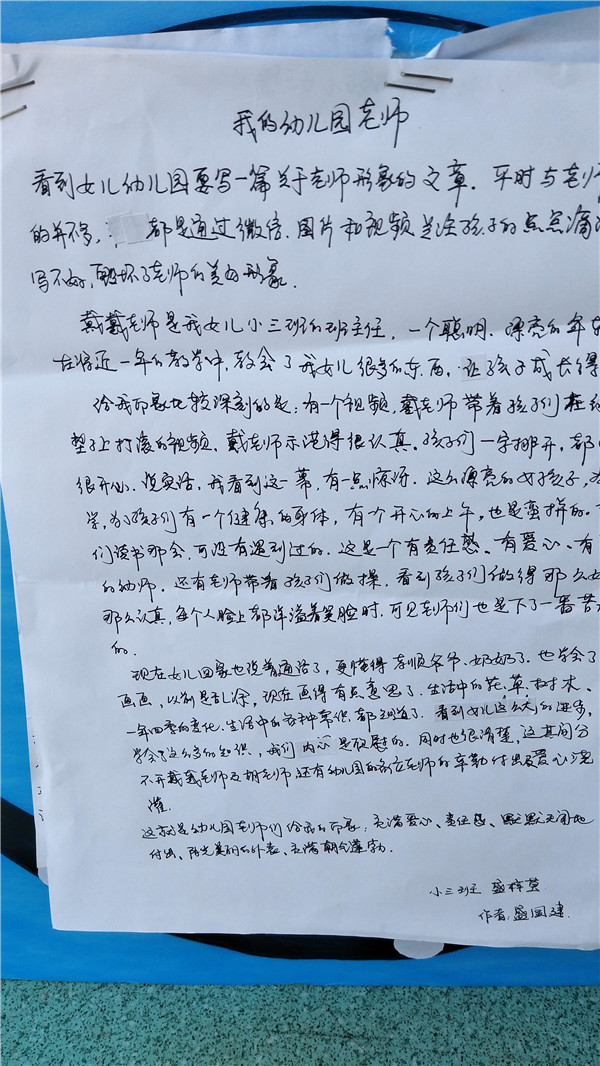 我的幼儿园老师
看到女儿幼儿园要写一篇关于老师形象的文章。平时与老师
的并不多, 都是通过微信.图片和视频关注孩子的点点滴滴
写不好,破坏了老师的美好形象.
戴戴老师是我女儿小三班的班主任,一个聪明.漂亮的年轻
在将近一年的教学中,教会了我女儿很多的东西,让孩子成长得
给我印象比较深刻的是:有一个视频,戴老师带着孩子们在
垫子上打滚的视频,戴老师示范得很认真,孩子们一字排开,都
很开心.说实话,我看到这一幕,有一点惊讶.这么漂亮的女孩子,为
学,为了孩子们有一个健康的身体,有个开心的上午,也是蛮拼的.
们读书那会,可没有遇到过的.这是一个有责任感、有爱心、有
的幼师.还有老师带着孩子们做操,看到孩子们做得那么好
那么认真,每个人脸上都洋溢着笑脸时,可见老师们也是下了一番苦
的.
现在女儿回家也说普通话了,更懂得孝顺爷爷.奶奶了.也学会了
画画,以前是乱涂,现在画得有点意思了.生活中的花.草.树木.
一年四季的变化.生活中的各种常识都知道了.看到女儿这么大的进步,
学会了这么多的知识,我们内心是欣慰的.同时也很清楚,这其间分
不开戴戴老师及胡老师还有幼儿园的各位老师的辛勤付出及爱心浇
灌.
这就是幼儿园老师们给我的印象:充满爱心、责任感、默默无闻地
付出、阳光美丽的外表、充满朝气蓬勃.
小三班 盛梓萱
作者:盛国建.